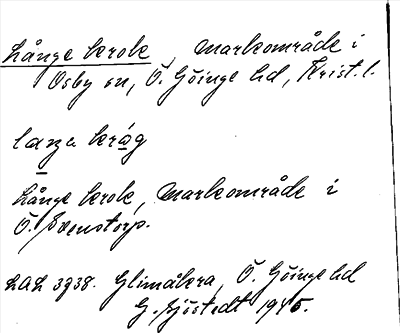 Långe krok, markområde i
Osby sn, Ö. Göinge hd, Krist. l.
långe krok, markområde i
Ö. Svenstorp.
LAL 3938. Glimåkra, Ö. Göinge hd
G. Sjöstedt 1945.